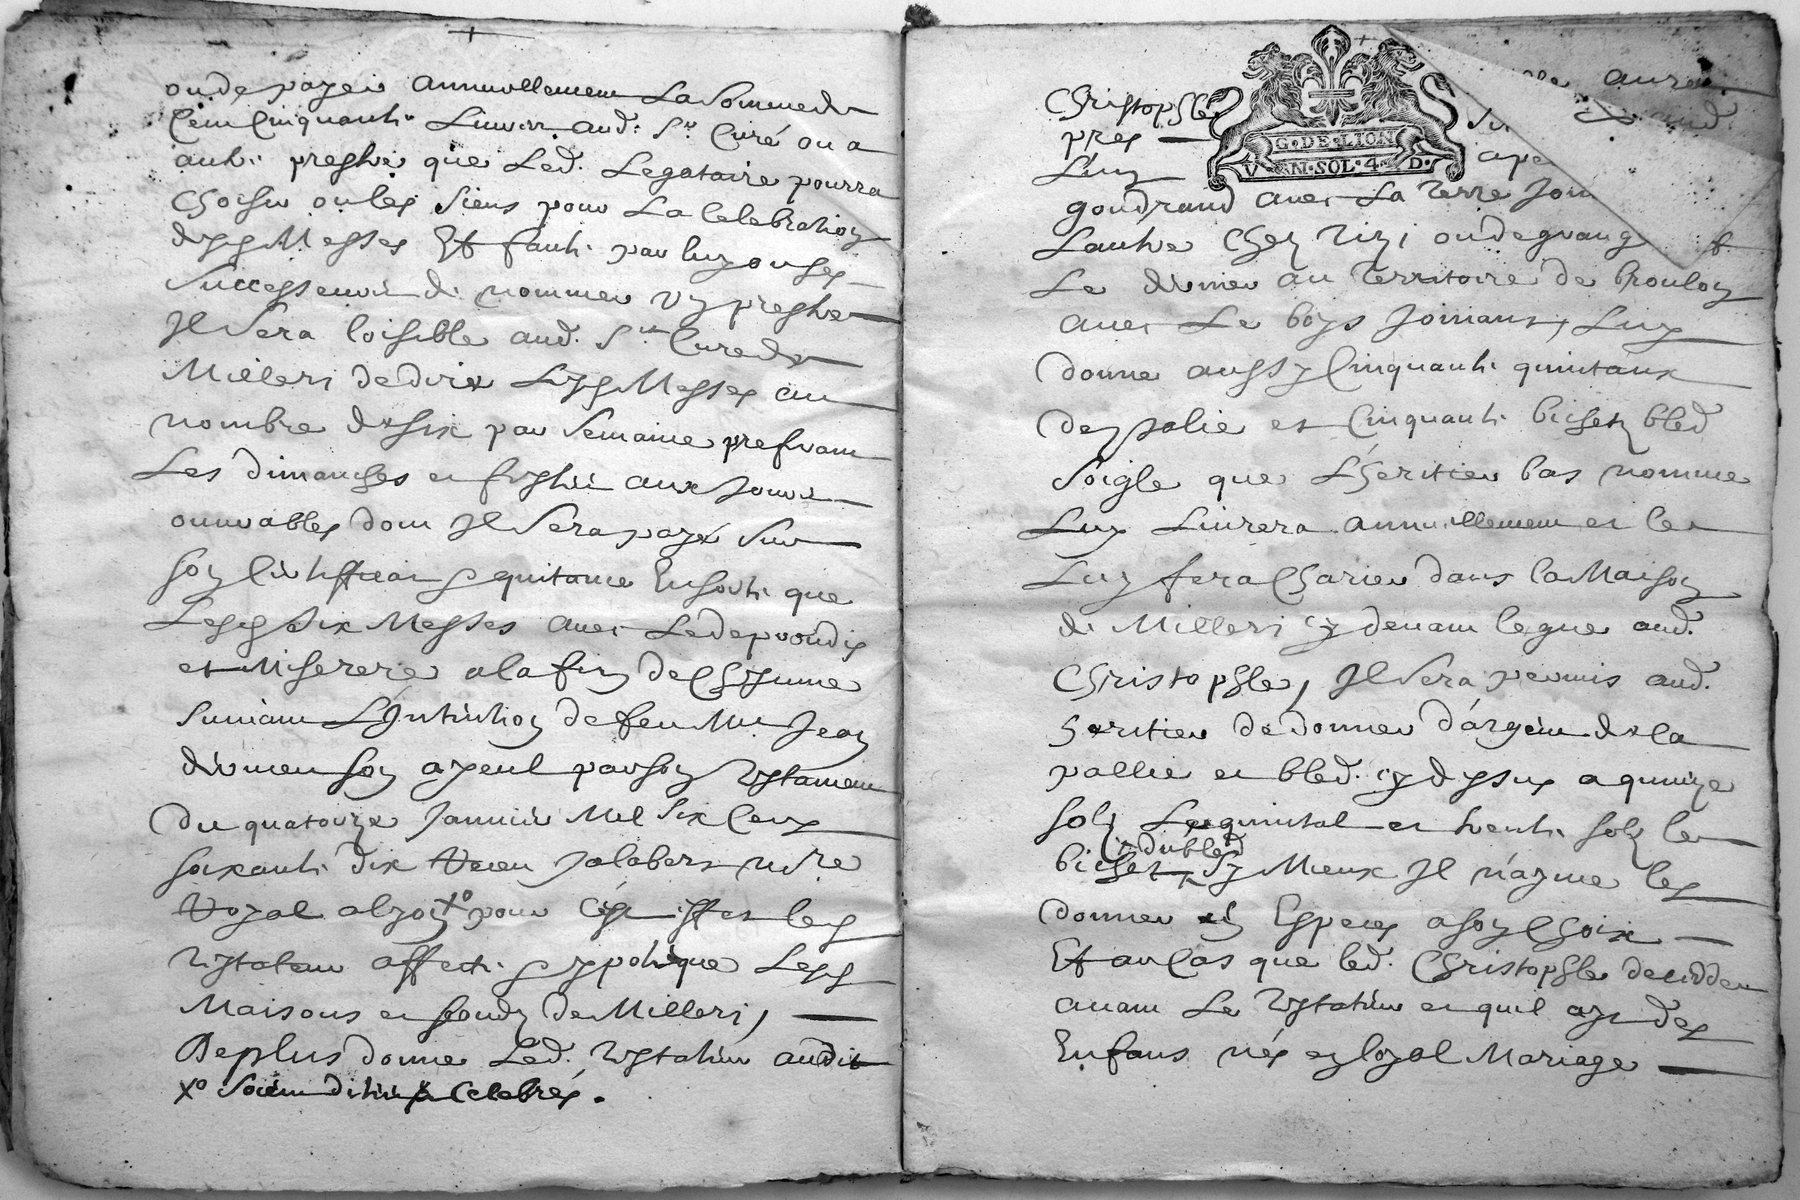 ou de payer annuellement La Somme de
Cent Cinquante Livres aud. Sr. Curé ou a
autre prestre que Led. Legataire pourra
choisir ou les siens pour La Celebration
desd. Messes Et faute par luy ou ses
Successeurs de nommer un prestre
Il sera loisible aud. Sr. Curé de
Milleri de dire Lesd. Messes au
nombre de six par semaine preferant
Les dimanches et festes aux jours
ouvrables dont Il sera payé sur
son certifficat et quitance En sorte que
Lesd. six Messes avec Le deprofondis
et Miserere a la fin de chascune
Suivant L'Intention de feu Me. Jean
son ayeul par son testament
du quatorze Janvier Mil Six Cent
soixante dix Receu Jalabert no.re
Royal a Lyon xo pour cest effet led.
testateur affecte et ypoteque Lesd.
Maisons et fonds de Milleri,
De plus donne Led. testateur audit
xo soient dites et celebrés.
Christophle
pres
Luy
G. DE. LION
V N. SOL. 4. D.
goudrand avec La Terre
Lautre chez
Le dernier au Territoire de
avec Le boys joinant, Luy
donne aussy Cinquante quintaux
de palie et Cinquante bichets bled
soigle que L'heritier bas nommé
Luy Livrera annuellement et les
Luy fera charier dans la Maison
de Milleri cy devant legué aud.
Christophle, Il sera permis aud.
heritier de donner d'argent de la
pallie et bled. cy dessus a quinze
sols Le quintal et trente sols le
dubled
bichet, Sy Mieux Il n'ayme les
donner en Especes a son choix
Et au Cas que led. Christophle deceddes
avant Le testateur et quil aye des
Enfans nés en loyal Mariage